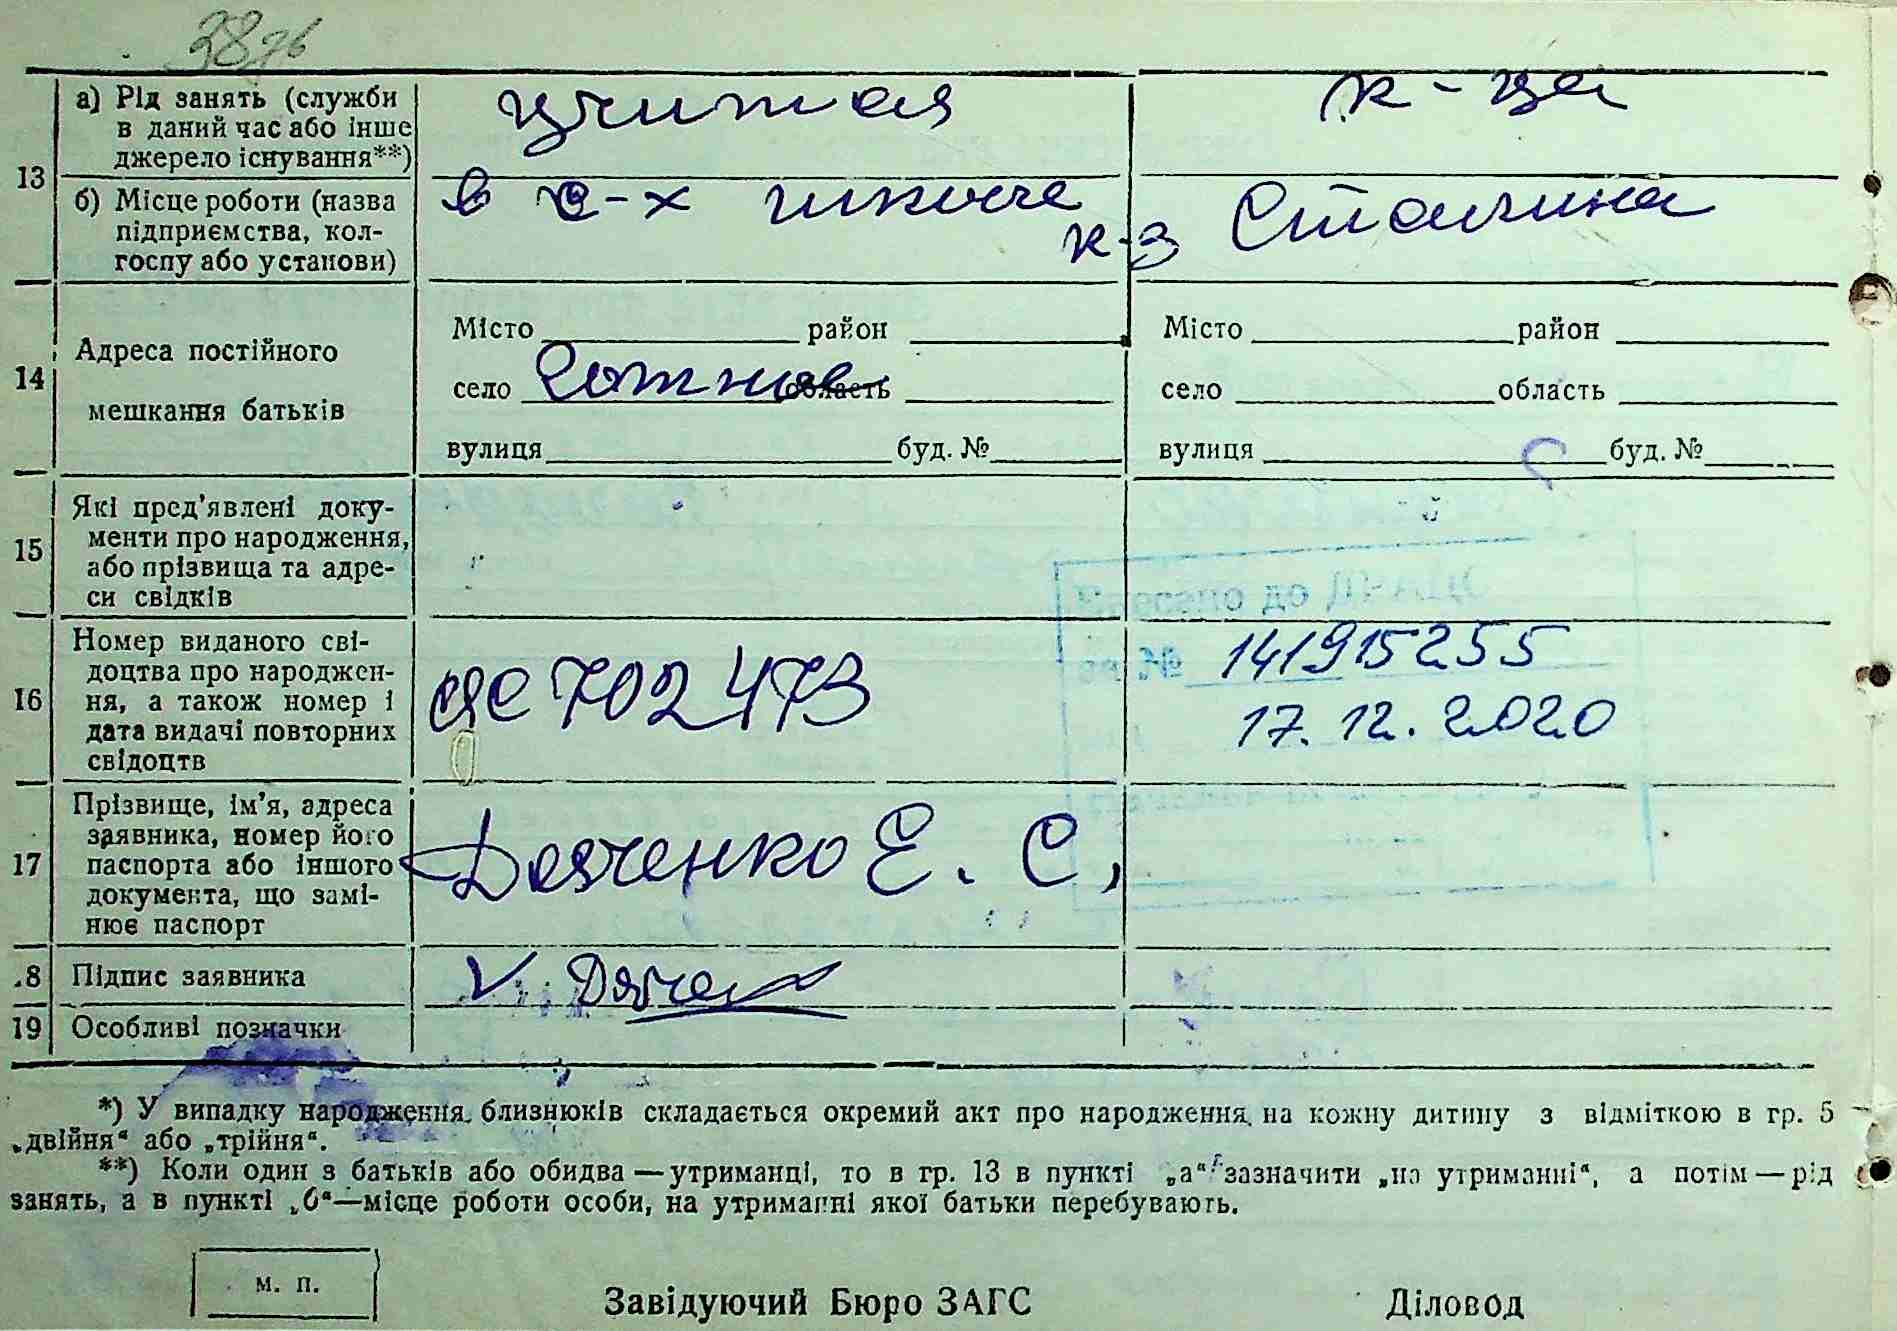 а) Рід занять (служби
в даний час або інше
джерело існування**)
учитея
к-ца
13
б) Місце роботи (назва
підприємства, кол-
госпу або установи)
в с-х школе
к-з Сталина
14
Адреса постійного
мешкання батьків
Місто район
село область
вулиця буд. №
Місто район
село область
вулиця буд. №
15
Які пред'явлені доку-
менти про народження,
або прізвища та адре-
си свідків
до ДРАЦС
16
Номер виданого сві-
доцтва про народжен-
ня, а також номер і
дата видачі повторних
свідоцтв
702473
№ 141915255
17.12.2020
17
Прізвище, ім'я, адреса
заявника, номер його
паспорта або іншого
документа, що замі-
нює паспорт
Дьяченко Е. С,
.8
Підпис заявника
V.
19
Особливі позначки
*) У випадку народження близнюків складається окремий акт про народження на кожну дитину з відміткою в гр. 5
„двійня“ або „трійня“.
**) Коли один з батьків або обидва — утриманці, то в гр. 13 в пункті „а“ зазначити „на утриманні“, а потім — рід
занять, а в пункті „б“—місце роботи особи, на утриманні якої батьки перебувають.
м. п.
Завідуючий Бюро ЗАГС
Діловод